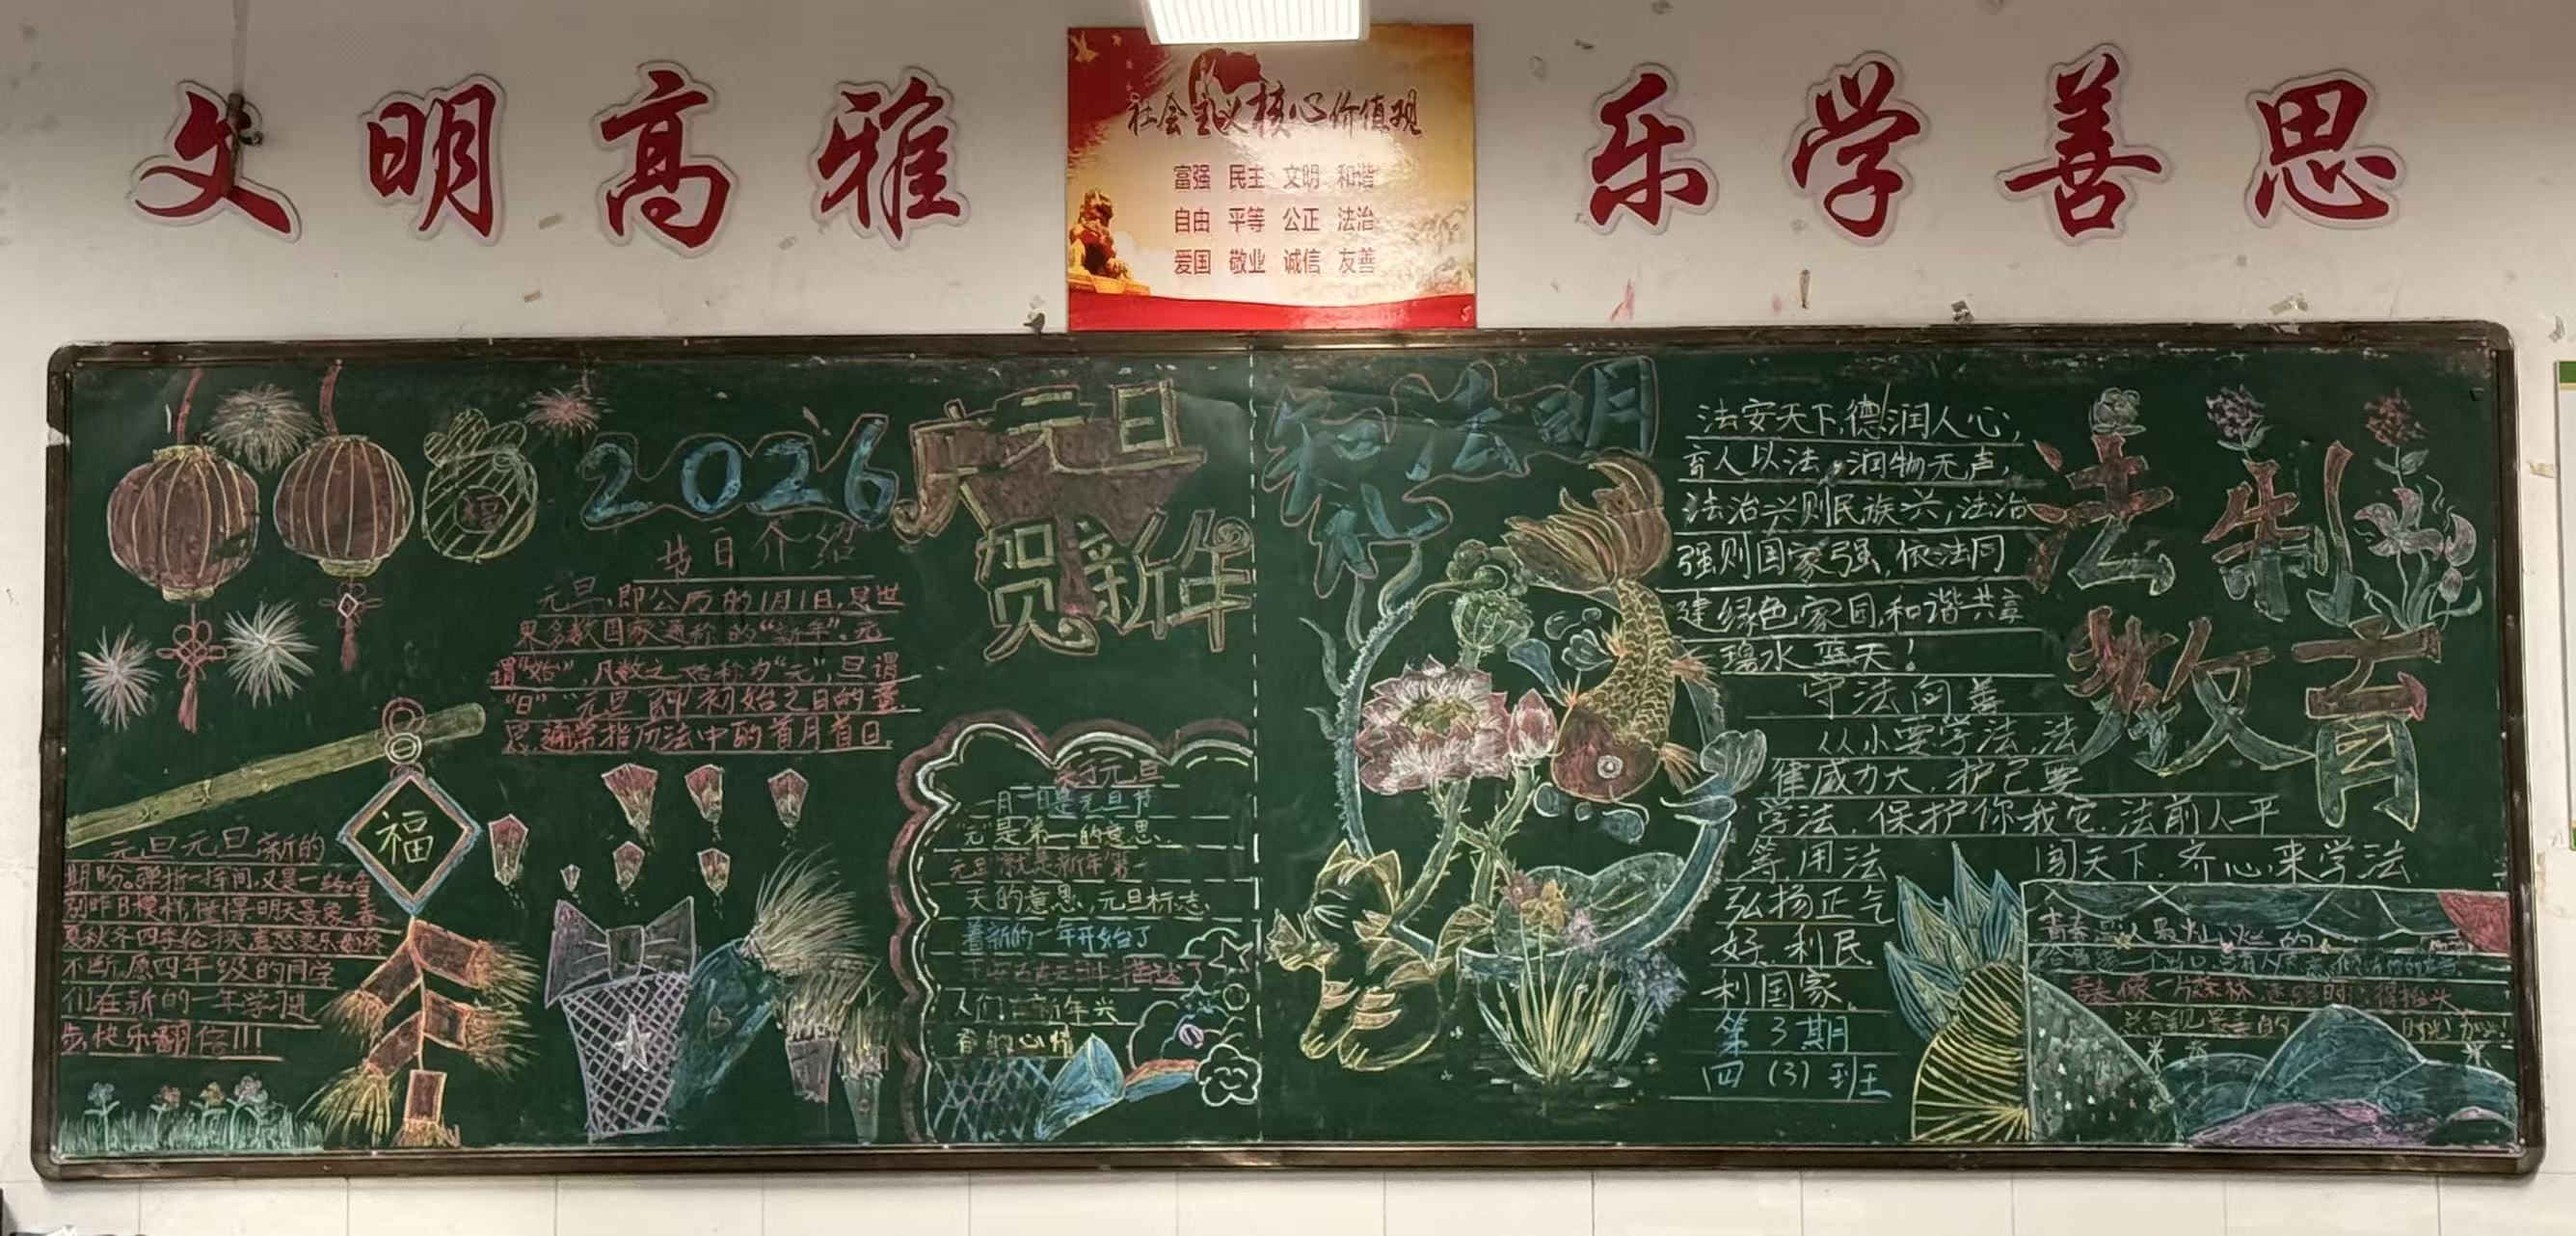 文明高雅
社会主义核心价值观
富强 民主 文明 和谐
自由 平等 公正 法治
爱国 敬业 诚信 友善
乐学善思
福
2026
庆元旦
贺新年
节日介绍
元旦,即公历的1月1日,是世
界多数国家通称的“新年”.元
谓“始”,凡数之始称为“元”,旦谓
“日”“元旦”即初始之日的意
思.通常指历法中的首月首日.
福
元旦元旦新的
期盼。弹指一挥间,又是一年
别昨日模样,憧憬明天景象,春
夏秋冬四季轮换
不断,愿四年级的同学
们在新的一年学习进
步,快乐翻倍!!!
元旦
一月一日是元旦节
“元”是第一的意思.
元旦就是新年第一
天的意思,元旦标志
着新的一年开始了
人们 新年兴
奋的心情
知法明
礼
法安天下,德润人心,
育人以法,润物无声,
法治兴则民族兴,法治
强则国家强,依法同
建绿色家园,和谐共享
碧水蓝天!
守法向善
从小要学法,法
律威力大,护己要
学法,保护你我它.法前人平
等,用法 闯天下.齐心来学法
弘扬正气
好.利民
利国家.
第3期
四(3)班
法制
教育
青春是人最灿烂的
青春像一片森林,
总会见最美的